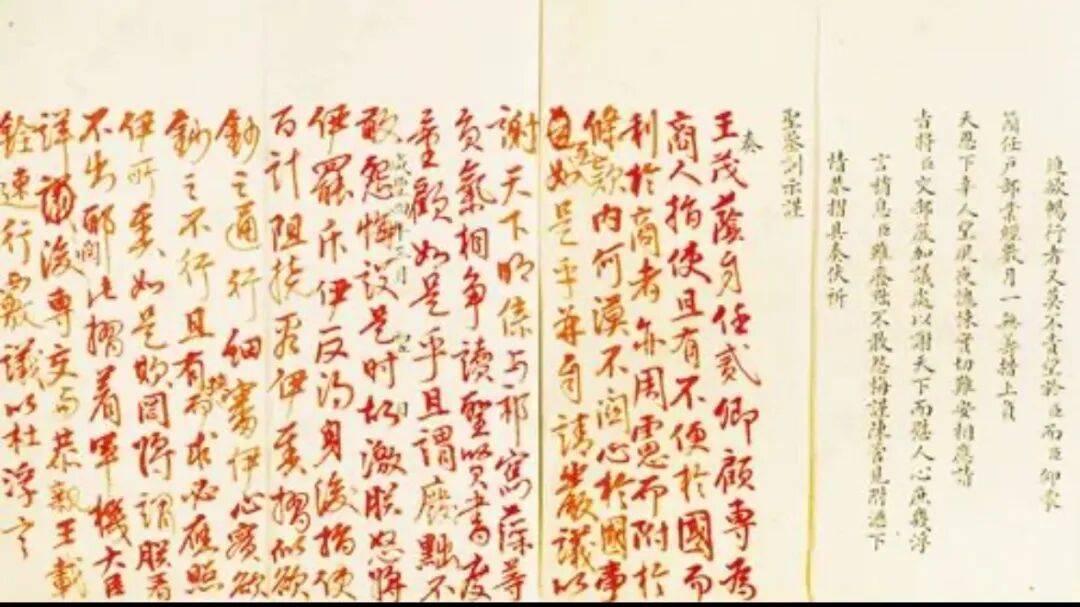 欲暢行者又莫不責望於臣而臣仰蒙
簡任戶部業經數月一無善措上負
天恩下辜人望夙夜愧悚實切難安相應請
旨將臣交部嚴加議處以謝天下而慰人心庶幾浮
言稍息臣雖廢黜不敢怨悔謹陳管見附
情恭摺具奏伏祈
聖鑒訓示謹
奏
王茂蔭身任貳卿顧專為
商人指使且有不便於國而
利於商者亦周慮而附於
條款內何漠不關心於國事
至如是乎並自請嚴議以
謝天下明係與祁寯藻等
負氣相爭讀聖賢書度
量顧如是乎且謂廢黜不
敢怨悔設是時故激朕怒將
咸豐四年三月 日
伊罷斥伊反得身後指使
百計阻撓看伊奏摺似欲
鈔之通行細審伊心實欲
鈔之不行且有挾而求必應照
伊所奏如是欺罔將謂朕看
不出耶此摺着軍機大臣
詳閱後專交與恭親王載
銓速行覈議以杜浮言